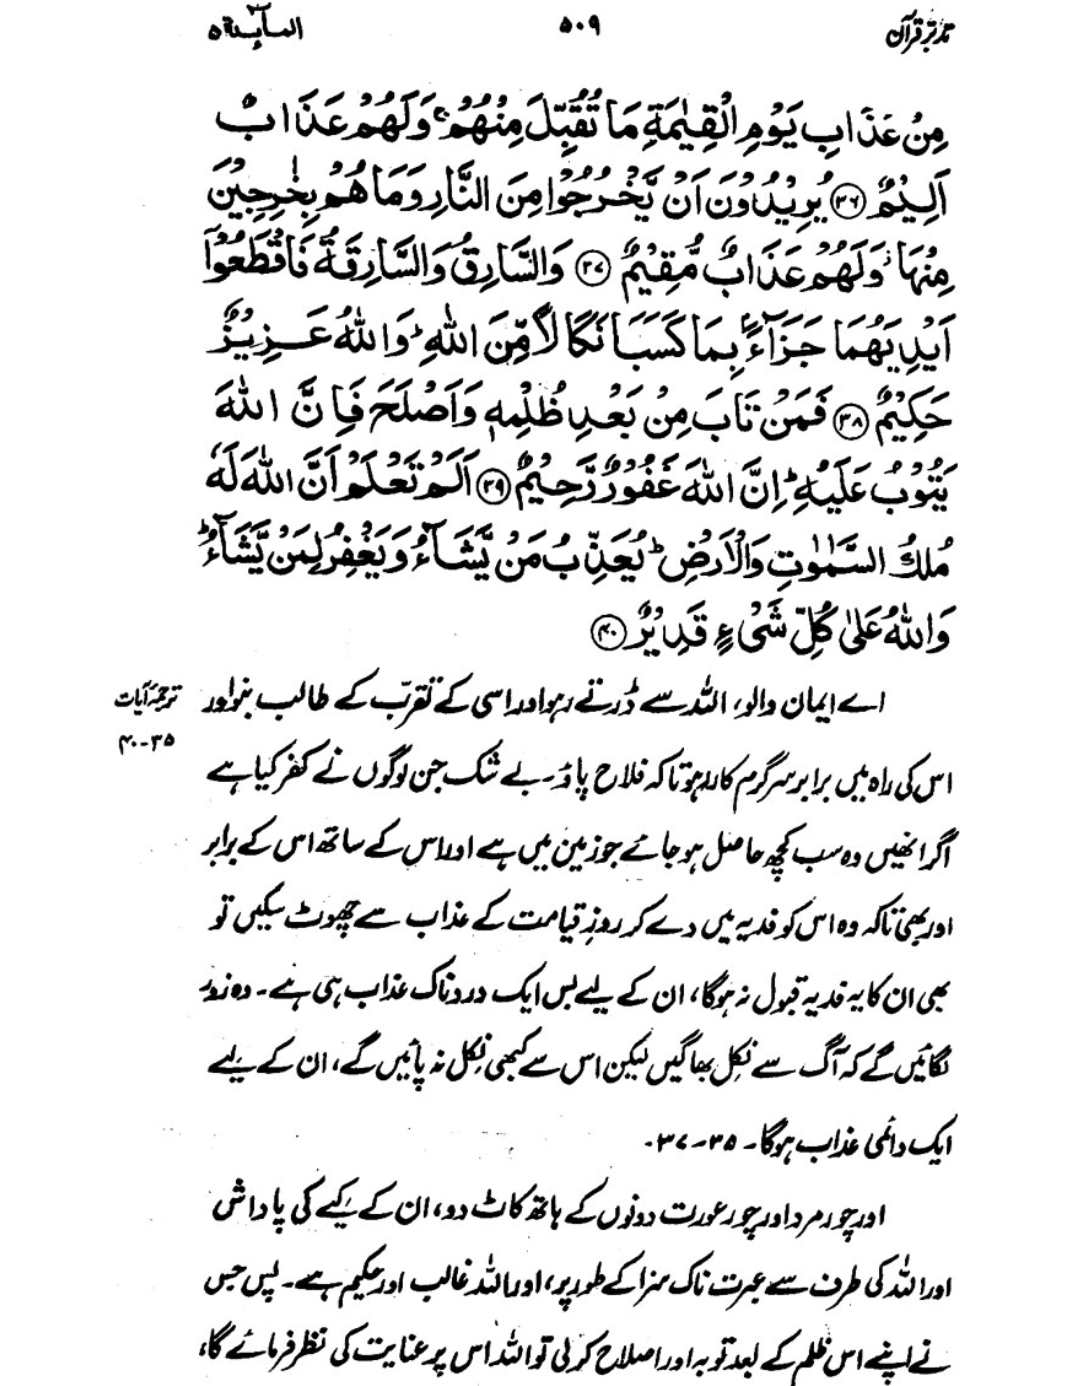 تدبرِ قرآن ۵۰۹ المآئدۃ ۵
مِنْ عَذَابِ يَوْمِ الْقِيٰمَةِ مَا تُقُبِّلَ مِنْهُمْ ۚ وَلَهُمْ عَذَابٌ
اَلِيْمٌ ﴿۳۶﴾ يُرِيْدُوْنَ اَنْ يَّخْرُجُوْا مِنَ النَّارِ وَمَا هُمْ بِخٰرِجِيْنَ
مِنْهَا ۫ وَلَهُمْ عَذَابٌ مُّقِيْمٌ ﴿۳۷﴾ وَالسَّارِقُ وَالسَّارِقَةُ فَاقْطَعُوْٓا
اَيْدِيَهُمَا جَزَآءًۢ بِمَا كَسَبَا نَكَالًا مِّنَ اللّٰهِ ؕ وَاللّٰهُ عَزِيْزٌ
حَكِيْمٌ ﴿۳۸﴾ فَمَنْ تَابَ مِنْۢ بَعْدِ ظُلْمِهٖ وَاَصْلَحَ فَاِنَّ اللّٰهَ
يَتُوْبُ عَلَيْهِ ؕ اِنَّ اللّٰهَ غَفُوْرٌ رَّحِيْمٌ ﴿۳۹﴾ اَلَمْ تَعْلَمْ اَنَّ اللّٰهَ لَهٗ
مُلْكُ السَّمٰوٰتِ وَالْاَرْضِ ؕ يُعَذِّبُ مَنْ يَّشَآءُ وَيَغْفِرُ لِمَنْ يَّشَآءُ ؕ
وَاللّٰهُ عَلٰى كُلِّ شَىْءٍ قَدِيْرٌ ﴿۴۰﴾
ترجمۂ آیات
۳۵-۴۰
اے ایمان والو، اللہ سے ڈرتے رہو اور اسی کے تقرّب کے طالب بنو اور
اس کی راہ میں برابر سرگرم کار رہو تاکہ فلاح پاؤ۔ بے شک جن لوگوں نے کفر کیا ہے
اگر انھیں وہ سب کچھ حاصل ہو جائے جو زمین میں ہے اور اس کے ساتھ اس کے برابر
اور بھی تاکہ وہ اس کو فدیہ میں دے کر روزِ قیامت کے عذاب سے چھوٹ سکیں تو
بھی ان کا یہ فدیہ قبول نہ ہوگا، ان کے لیے بس ایک دردناک عذاب ہی ہے۔ وہ زور
لگائیں گے کہ آگ سے نکل بھاگیں لیکن اس سے کبھی نکل نہ پائیں گے، ان کے لیے
ایک دائمی عذاب ہوگا۔ ۳۵-۳۷۔
اور چور مرد اور چور عورت دونوں کے ہاتھ کاٹ دو، ان کے کیے کی پاداش
اور اللہ کی طرف سے عبرت ناک سزا کے طور پر، اور اللہ غالب اور حکیم ہے۔ پس جس
نے اپنے اس ظلم کے بعد توبہ اور اصلاح کر لی تو اللہ اس پر عنایت کی نظر فرمائے گا،